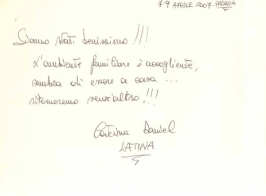 7-9 APRILE 2007
Siamo stati benissimo!!!
L'ambiente familiare è accogliente,
sembra di essere a casa...
ritorneremo senz'altro!!!
Caterina Daniel
LATINA